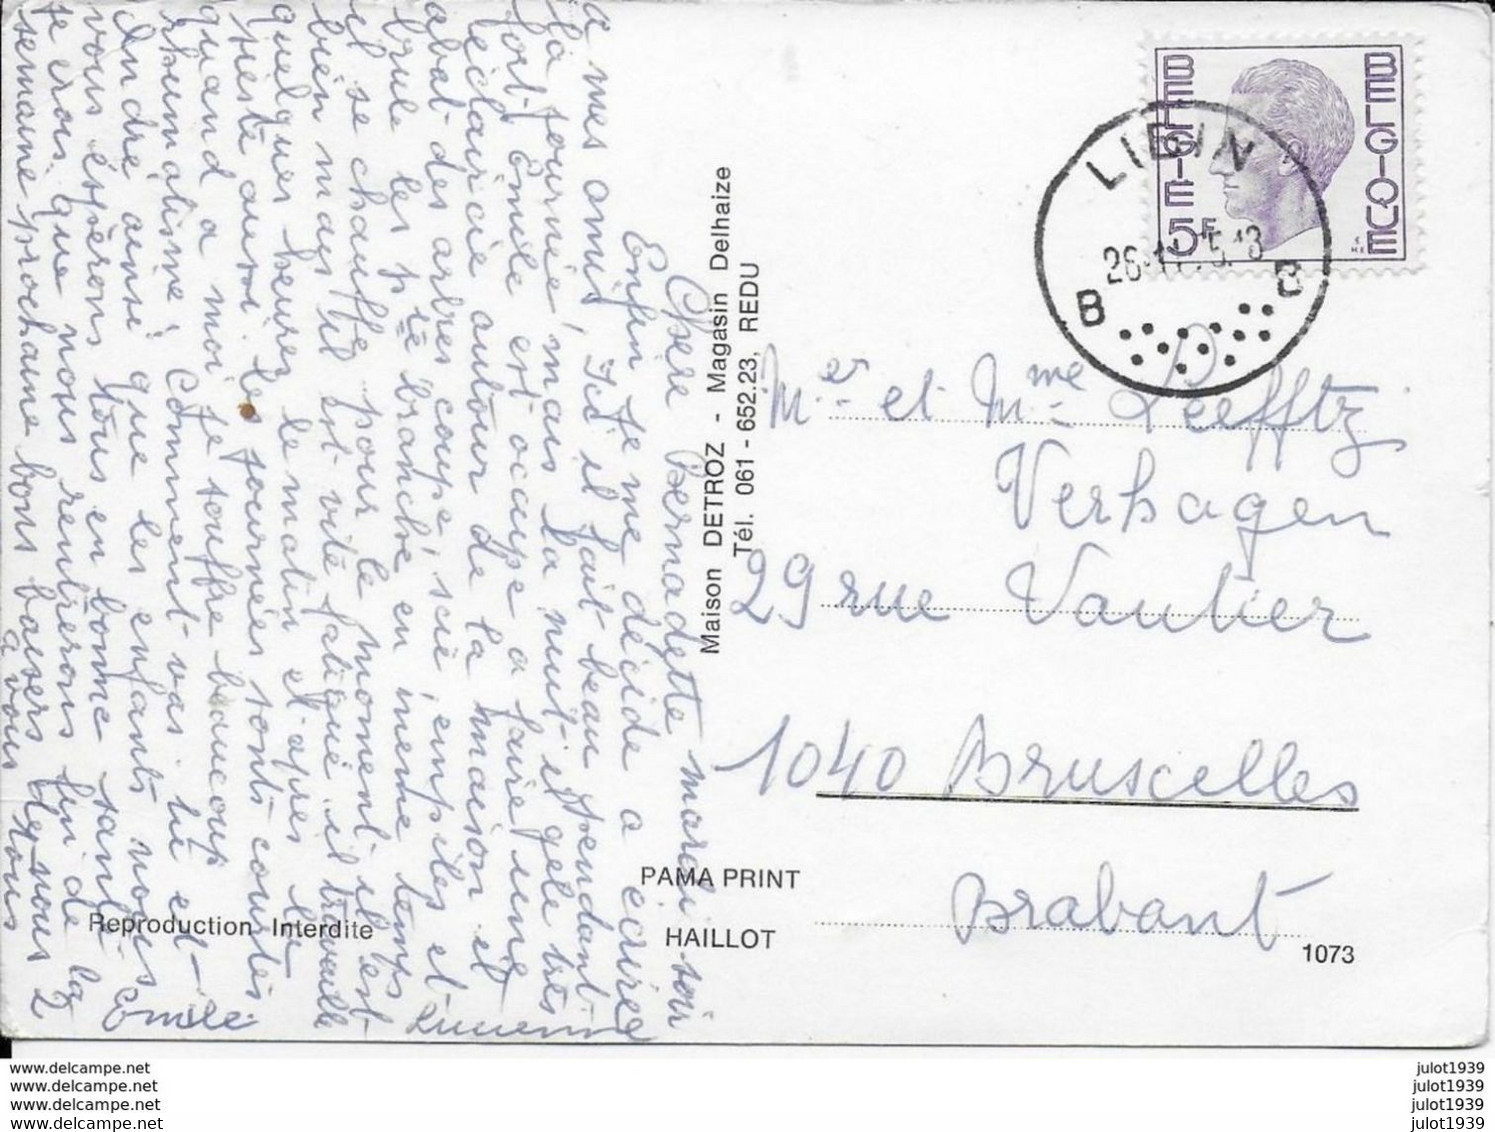 mardi soir
Chère Bernadette
Enfin je me décide a écrire
a mes amis, Ici il fait beau pendant
la journée mais la nuit il gèle très
fort, Émile est occupé a faire une
éclaircie autour de la maison il
abat des arbres coupé, scié empiles et
brule les ptte branche en meme temps
il se chauffe, pour le moment il est
bien mais il est vite fatigué il travaille
quelques heures le matin et apres la
sieste aussi. les journées sont courtes
quand a moi je souffre beaucoup
rhumatisme, Comment vas tu et
André ainsi que les enfants nous
vous éspèrons tous en bonne santé
je crois que nous rentrerons fin de la
semaine prochaine bons baisers de nous 2
a vous tous
Emile
Lucienne
Maison DETROZ - Magasin Delhaize
Tél. 061 - 652.23, REDU
BELGIE BELGIQUE
5F
LIBIN
B B
Mr et Mme Leefftz
Verhagen
29 rue Vautier
1040 Bruxelles
Brabant
PAMA PRINT
HAILLOT
Reproduction Interdite
1073
www.delcampe.net
www.delcampe.net
www.delcampe.net
www.delcampe.net
julot1939
julot1939
julot1939
julot1939